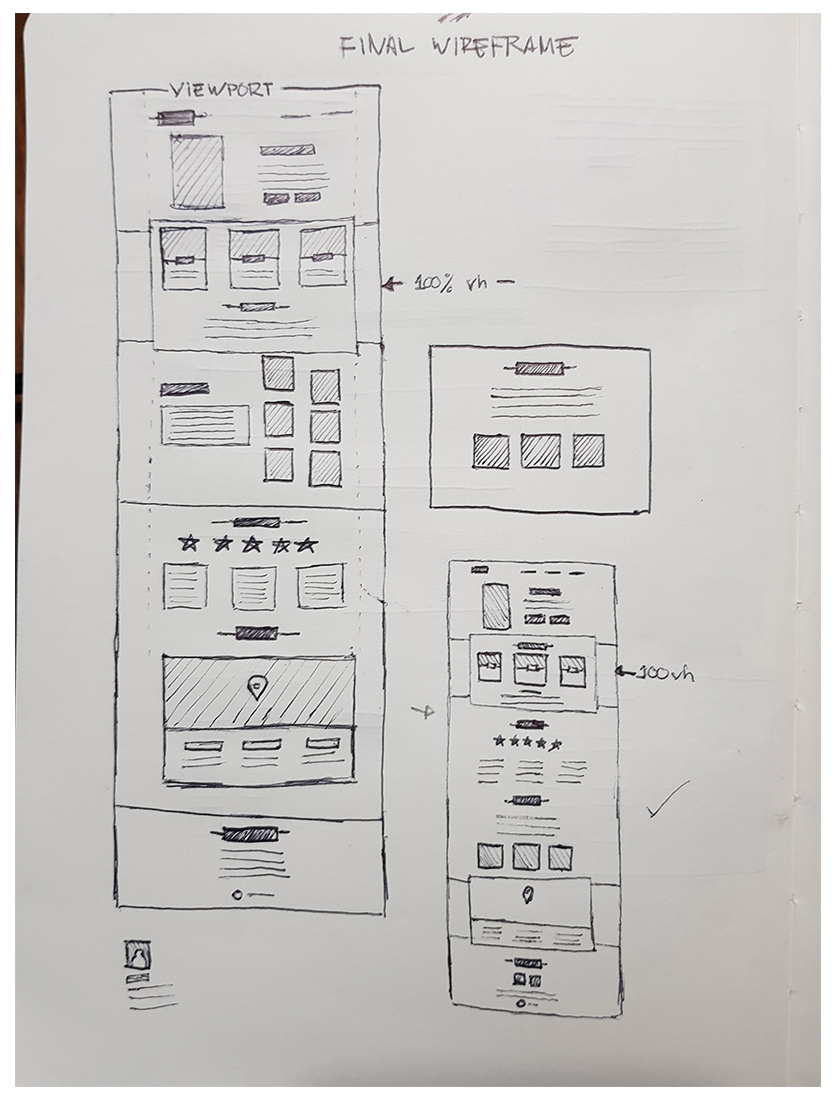 FINAL WIREFRAME
VIEWPORT
100% vh
100vh